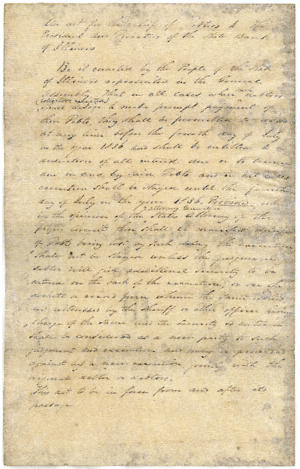 An act for the relief of debtors to the
President and Directors of the State Bank
of Illinois
Be it enacted by the People of the State
of Illinois represented in the General
Assembly That in all cases when debtors
shall to make prompt payment of
their debts, they shall be permitted to
at any time before the fourth day of July
in the year 1836 and shall be entitled to
a reduction of all interest due or to become
due on said debts and in all cases
execution shall be stayed until the fourth
day of July in the year 1836, Provided,
in the opinion of the States Attorney of the
proper circuit there shall be danger
of debts being lost by such delay, the execution
shall not be stayed unless the judgment
debtor will give additional security to be
entered on the back of the execution, or on
separate a form, whereon the same
witnessed by the sheriff or other officer having
charge of the same and the security so entered
shall be considered as a new party to such
judgment and execution and may be proceeded
against by a new execution jointly with the
original debtor or debtors.
This act to be in force from and after its
passage